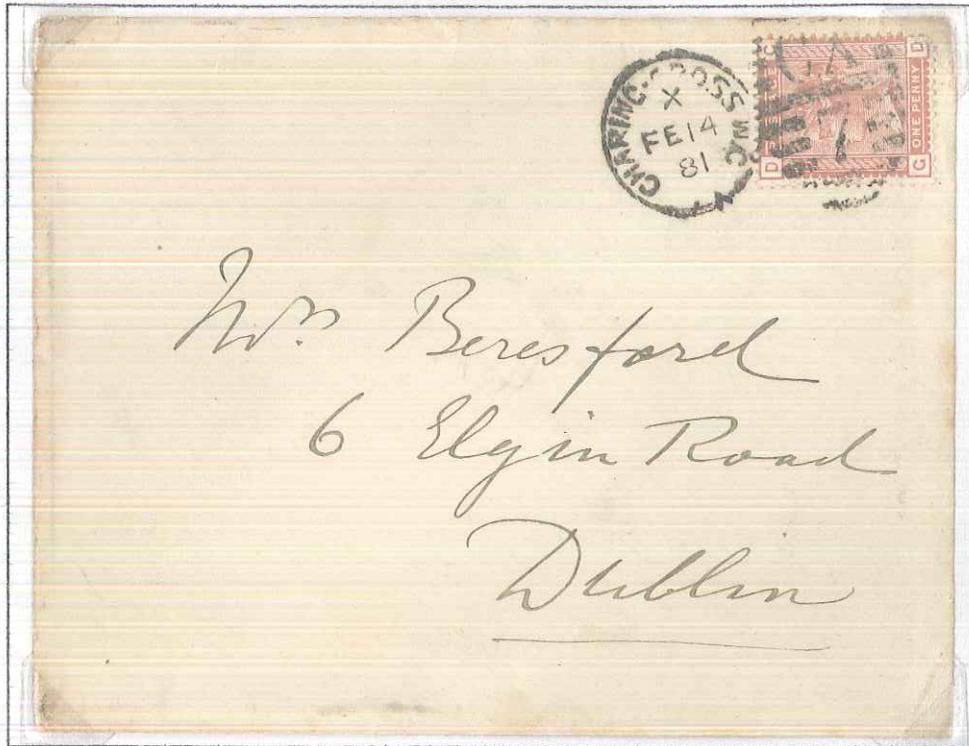 CHARING-CROSS W.C
X
FE 14
81
C
D
ONE PENNY
D
G
Mrs Beresford
6 Elgin Road
Dublin